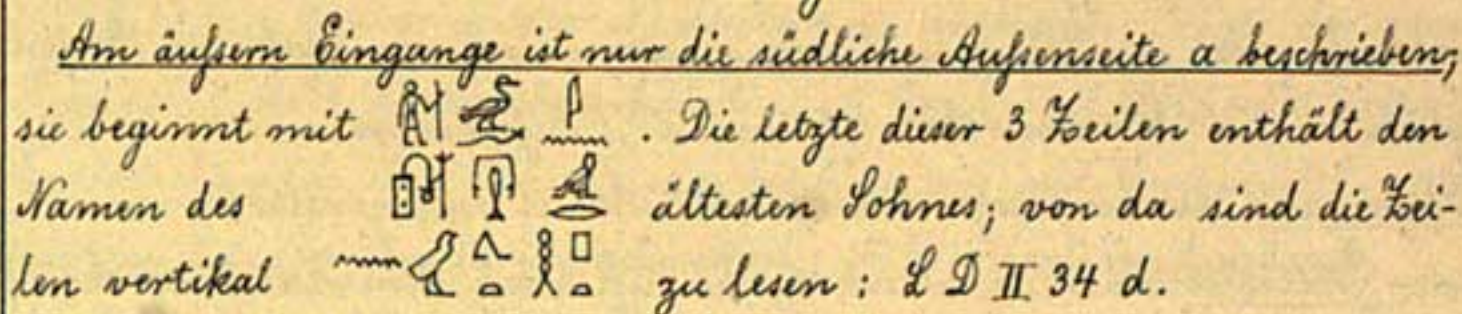 Am äußern Eingange ist nur die südliche Außenseite a beschrieben;
sie beginnt mit . Die letzte dieser 3 Zeilen enthält den
Namen des ältesten Sohnes; von da sind die Zei-
len vertikal zu lesen : L D II 34 d.